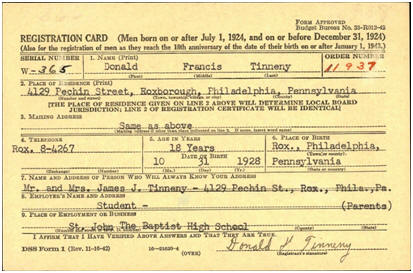 FORM APPROVED
Budget Bureau No. 33-R012-42
REGISTRATION CARD (Men born on or after July 1, 1924, and on or before December 31, 1924)
(Also for the registration of men as they reach the 18th anniversary of the date of their birth on or after January 1, 1943.)
SERIAL NUMBER 1. NAME (Print) ORDER NUMBER
W-365 Donald Francis Tinneny 11937
(First) (Middle) (Last)
2. PLACE OF RESIDENCE (Print)
4129 Pechin Street, Roxborough, Philadelphia, Pennsylvania
(Number and street) (State)
[THE PLACE OF RESIDENCE GIVEN ON LINE 2 ABOVE WILL DETERMINE LOCAL BOARD
JURISDICTION; LINE 2 OF REGISTRATION CERTIFICATE WILL BE IDENTICAL]
3. MAILING ADDRESS
Same as above
[Mailing address if other than place indicated on line 2. If same, insert word same]
4. TELEPHONE 5. AGE IN YEARS 6. PLACE OF BIRTH
Rox. 8-4267 18 Years Rox., Philadelphia,
DATE OF BIRTH (Town or county)
10 31 1928 Pennsylvania
(Exchange) (Number) (Mo.) (Day) (Yr.) (State or country)
7. NAME AND ADDRESS OF PERSON WHO WILL ALWAYS KNOW YOUR ADDRESS
Mr. and Mrs. James J. Tinneny - 4129 Pechin St., Rox., Phila.,Pa.
8. EMPLOYER'S NAME AND ADDRESS
Student - (Parents)
9. PLACE OF EMPLOYMENT OR BUSINESS
St. John The Baptist High School
(Number and street or R. F. D. number) (Town) (County) (State)
I AFFIRM THAT I HAVE VERIFIED ABOVE ANSWERS AND THAT THEY ARE TRUE.
DSS Form 1 (Rev. 11-16-42) 16-21630-4 Donald F Tinneny
(OVER) (Registrant's signature)